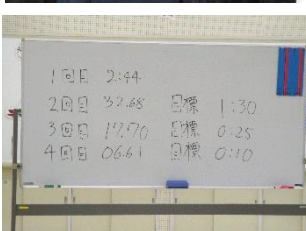 1回目 2:44
2回目 32.68 目標 1:30
3回目 17.70 目標 0:25
4回目 06.61 目標 0:10